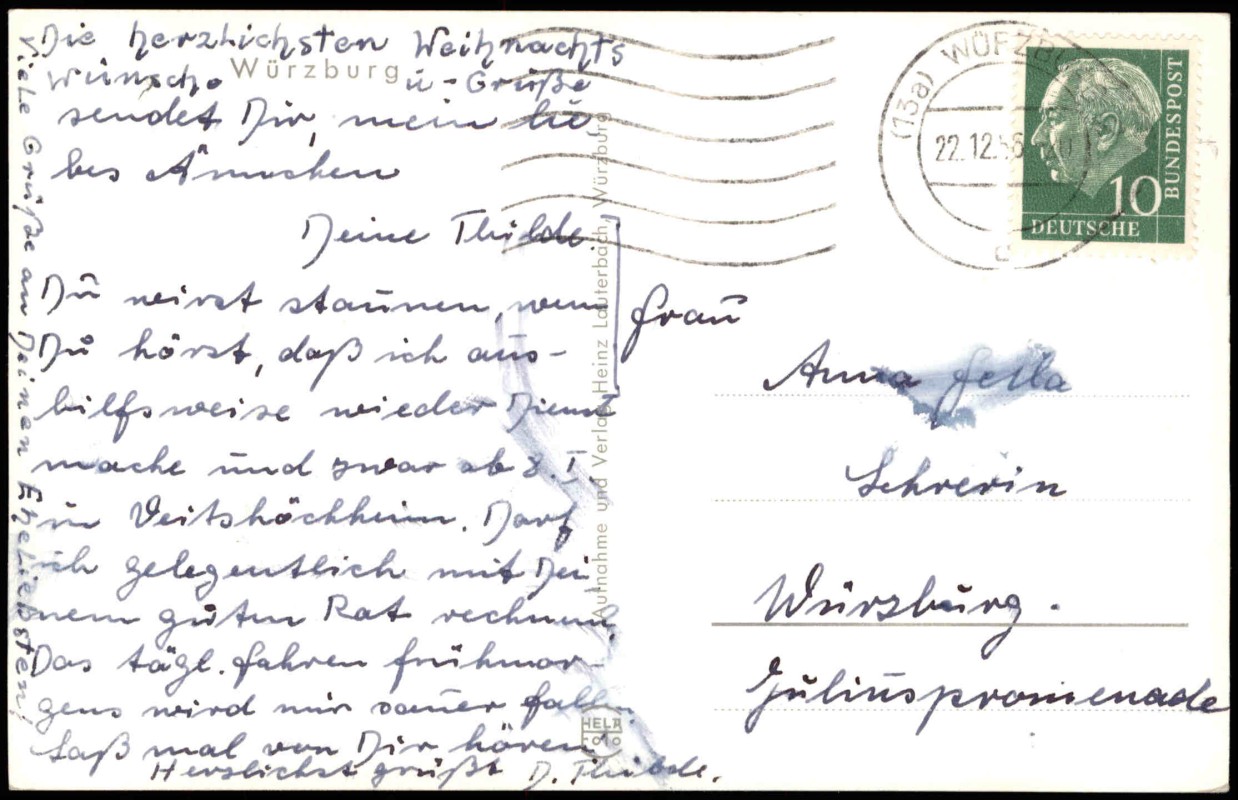 Die herzlichsten Weihnachts
Wünsche u - Grüße
Würzburg
sendet Dir, mein lie
bes Ännchen
Deine Thilde.
Du wirst staunen, wenn
Du hörst, daß ich aus-
hilfsweise wieder Dienst
mache und zwar ab 8. I.
in Veitshöchheim. Darf
ich gelegentlich mit Dei
nem guten Rat rechnen.
Das tägl. fahren frühmor-
gens wird mir sauer fallen.
Laß mal von Dir hören!
Herzlichst grüßt D. Thilde.
Viele Grüße an Deinen Eheliebsten!
Aufnahme und Verlag Heinz Lauterbach, Würzburg
HELA
COLOR
(13a) WÜRZBURG
22.12.56
c
10
DEUTSCHE
BUNDESPOST
Frau
Anna Fella
Lehrerin
Würzburg.
Juliuspromenade